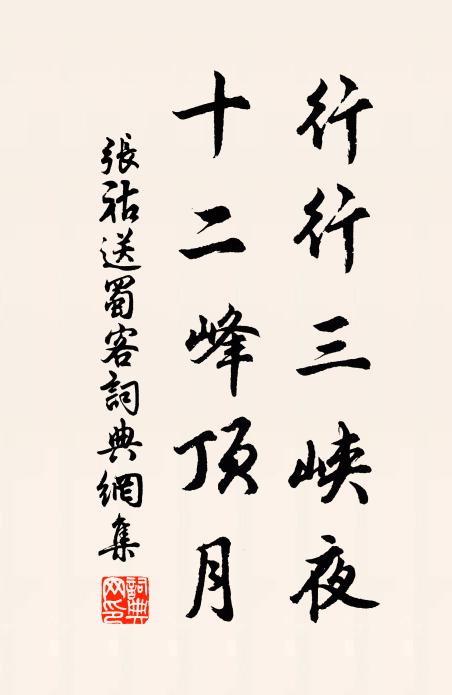 行行三峽夜
十二峰頂月
張祜送蜀客詞典網集
詞典網印